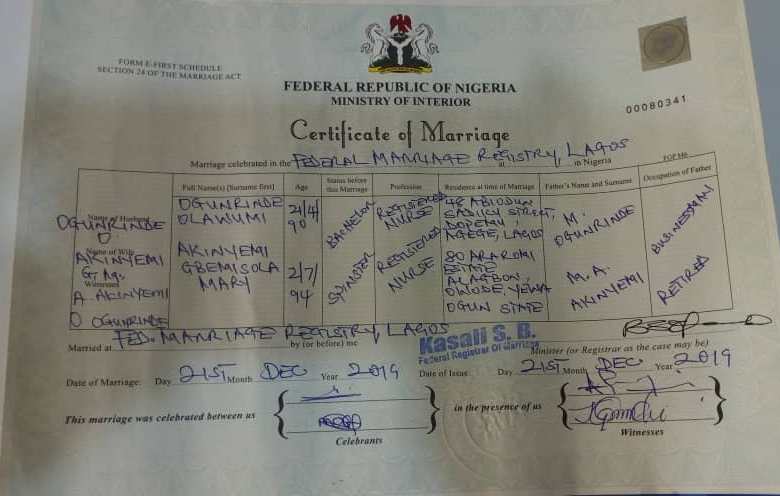 FORM E-FIRST SCHEDULE
SECTION 24 OF THE MARRIAGE ACT
FEDERAL REPUBLIC OF NIGERIA
MINISTRY OF INTERIOR
00080341
Certificate of Marriage
Marriage celebrated in the FEDERAL MARRIAGE REGISTRY, LAGOS at in Nigeria
Full Name(s) (Surname first) Age Status before this Marriage Profession Residence at time of Marriage Father's Name and Surname Occupation of Father
Name of Husband
OGUNRINDE O.
OGUNRINDE OLAWUMI 21/4 90 BACHELOR REGISTERED NURSE 48 ABIODUN STREET, DOPEMU, AGEGE, LAGOS M. OGUNRINDE BUSINESSMAN
Name of Wife
AKINYEMI G. M.
AKINYEMI GBEMISOLA MARY 2/7 94 SPINSTER REGISTERED NURSE 80 ARAROMI ESTATE ALAGBON, OWODE, YEWA OGUN STATE M.A. AKINYEMI RETIRED
Witnesses
A. AKINYEMI
O OGUNRINDE
Married at FED. MARRIAGE REGISTRY, LAGOS by (or before) me
Kasali S. B.
Federal Registrar Of Marriage
Minister (or Registrar as the case may be)
Date of Marriage: Day 21ST Month DEC Year 2019 Date of Issue: Day 21ST Month DEC Year 2019
This marriage was celebrated between us in the presence of us
Celebrants Witnesses